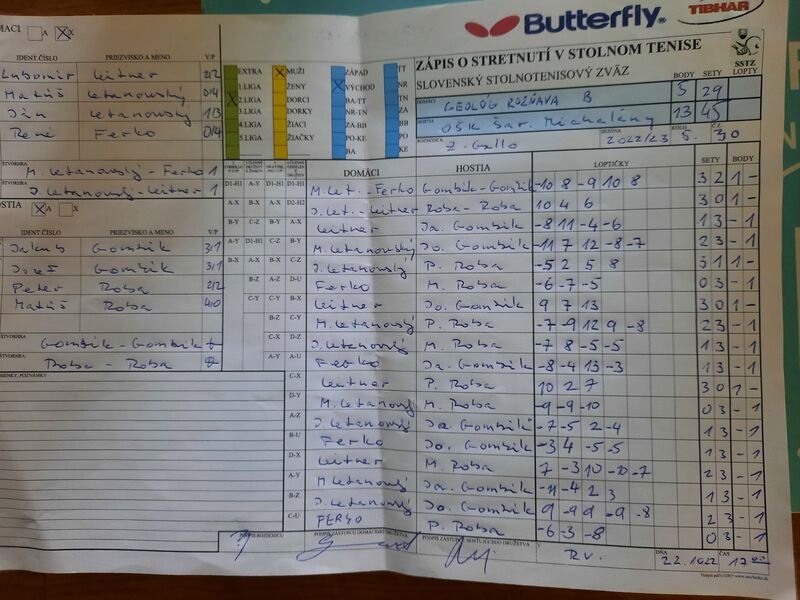 Butterfly
TIBHAR
ZÁPIS O STRETNUTÍ V STOLNOM TENISE
SLOVENSKÝ STOLNOTENISOVÝ ZVÄZ
SSTZ
BODY SETY LOPTY
DOMÁCI GEOLÓG ROŽŇAVA B 5 29
HOSTIA OŠK Šar. Michaľany 13 45
ROZHODCA Z. Gallo SEZÓNA 2022/23 KOLO 5. 30
A X X
IDENT.ČÍSLO PRIEZVISKO A MENO V/P
Ľubomír Leitner 2/2
Matúš Letanovský 0/4
Ján Letanovský 1/3
René Ferko 0/4
ŠTVORHRA M. Letanovský - Ferko 1
ŠTVORHRA J. Letanovský - Leitner 1
X A X
IDENT.ČÍSLO PRIEZVISKO A MENO V/P
Jakub Gombík 3/1
Jozef Gombík 3/1
Peter Roba 2/2
Matúš Roba 4/0
ŠTVORHRA Gombík - Gombík
ŠTVORHRA Roba - Roba
EXTRA X MUŽI ZÁPAD TT
1.LIGA ŽENY X VÝCHOD NR
X 2.LIGA DORCI BA-TT TN
3.LIGA DORKY NR-TN ZA
4.LIGA ŽIACI ZA-BB BB
5.LIGA ŽIAČKY PO-KE PO
BA KE
DOMÁCI HOSTIA LOPTIČKY SETY BODY
D1-H1 A-Y D1-H1 D1-H1 M. Let. - Ferko Gombík - Gombík -10 8 -9 10 8 3 2 1 -
A-X B-X A-X D2-H2 J. Let. - Leitner Roba - Roba 10 4 6 3 0 1 -
B-Y C-Z B-Y A-X Leitner Ja. Gombík -8 11 -4 -6 1 3 - 1
A-Y D1-H1 C-Z B-Y M. Letanovský Jo. Gombík -11 7 12 -8 -7 2 3 - 1
B-X A-X C-Z J. Letanovský P. Roba -5 2 5 8 3 1 1 -
Ferko M. Roba -6 -7 -5 0 3 - 1
Leitner Jo. Gombík 9 7 13 3 0 1 -
M. Letanovský P. Roba -7 -9 12 9 -8 2 3 - 1
J. Letanovský M. Roba -7 8 -5 -5 1 3 - 1
Ferko Ja. Gombík -8 -4 13 -3 1 3 - 1
C-X Leitner P. Roba 10 2 7 3 0 1 -
D-Y M. Letanovský M. Roba -9 -9 -10 0 3 - 1
A-Z J. Letanovský Ja. Gombík -7 -5 2 -4 1 3 - 1
B-U Ferko Jo. Gombík -3 4 -5 -5 1 3 - 1
D-X Leitner M. Roba 7 -3 10 -10 -7 2 3 - 1
A-Y M Letanovský Ja. Gombík 1 3 - 1
B-Z J. Letanovský Jo. Gombík 2 3 - 1
C-U FERKO P. Roba -6 -3 -8 0 3 - 1
PODPIS ROZHODCU
PODPIS ZÁSTUPCU DOMÁCEHO DRUŽSTVA
PODPIS ZÁSTUPCU HOSŤUJÚCEHO DRUŽSTVA
V R.V. DŇA 22.10.22 ČAS 17